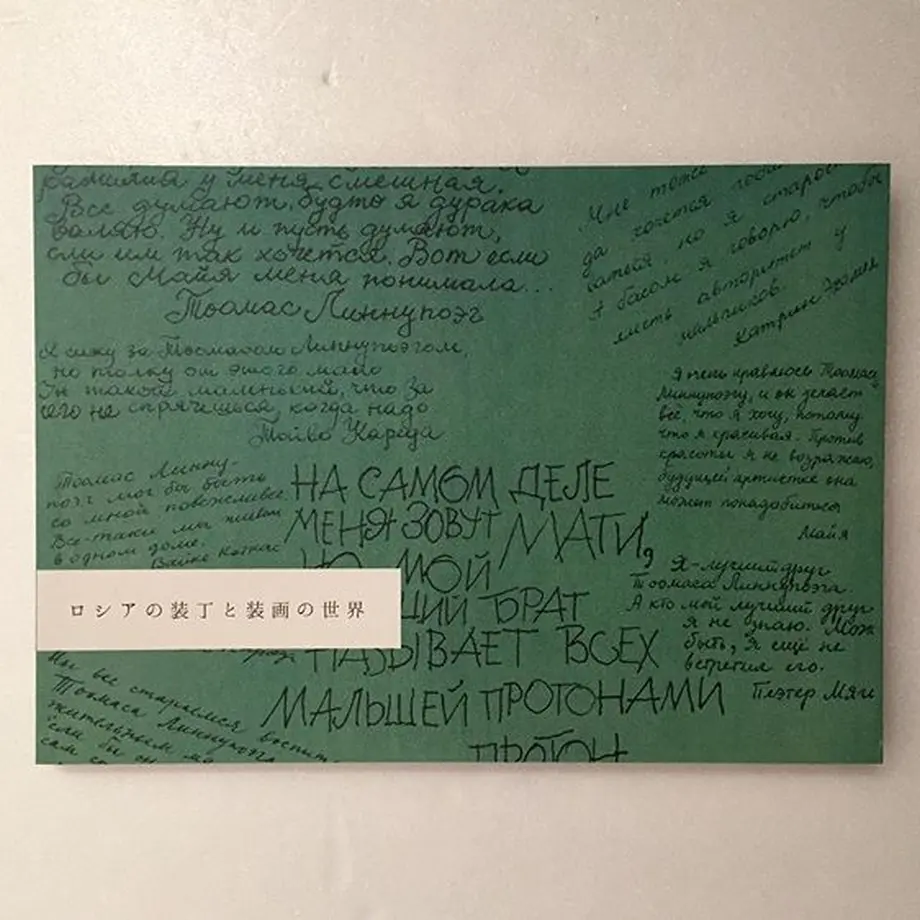 фамилия у меня смешная.
Все думают, будто я дурака
валяю. Ну и пусть думают,
если им так хочется. Вот если
бы Майя меня понимала...
Тоомас Линнупоэг
Мне тоже
да хочется
басом я говорю, чтобы
иметь авторитет у
мальчиков.
Катрин
Я сижу за Тоомасом Линнупоэгом,
но толку от этого мало
Он такой маленький, что за
него не спрячешься, когда надо
Тойво
Я очень нравлюсь Тоомасу
Линнупоэгу, и он делает
всё, что я хочу, потому
что я красивая. Против
красоты я не возражаю,
будущей артистке она
может понадобиться
Майя
Тоомас Линну-
поэг мог бы быть
со мной повежливее
Все-таки мы живем
в одном доме.
Вайке Коткас
НА САМОМ ДЕЛЕ
МЕНЯ ЗОВУТ МАТИ,
НО МОЙ
ШИЙ БРАТ
НАЗЫВАЕТ ВСЕХ
МАЛЫШЕЙ ПРОТОНАМИ
ПРОТОН
Я-лучший друг
Тоомаса Линнупоэга.
А кто мой лучший друг
я не знаю. Мож
быть, я ещё не
встретил его.
Пеэтер Мяги
ロシアの装丁と装画の世界
Мы все стараемся
Тоомаса Линнупоэга
если бы он
сам